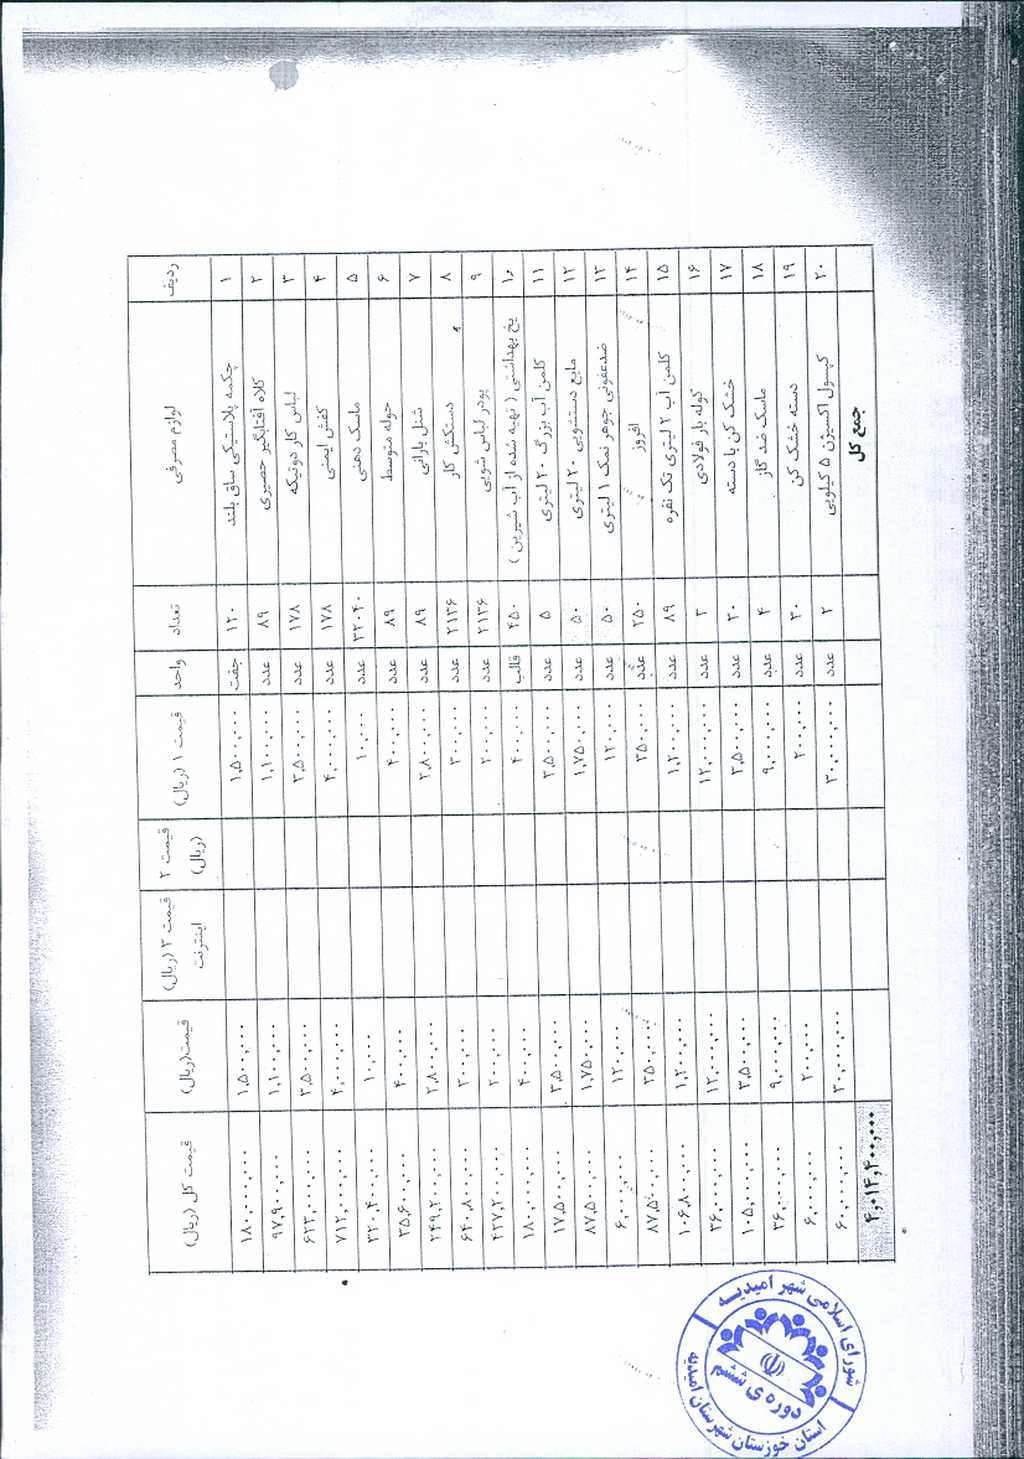 ردیف لوازم مصرفی تعداد واحد قیمت ۱ (ریال) قیمت ۲ (ریال) قیمت ۳ (ریال) اینترنت قیمت(ریال) قیمت کل (ریال)
۱ چکمه پلاستیکی ساق بلند ۱۲۰ جفت ۱,۵۰۰,۰۰۰ ۱,۵۰۰,۰۰۰ ۱۸۰,۰۰۰,۰۰۰
۲ کلاه آفتابگیر حصیری ۸۹ عدد ۱,۱۰۰,۰۰۰ ۱,۱۰۰,۰۰۰ ۹۷,۹۰۰,۰۰۰
۳ لباس کار دوتیکه ۱۷۸ عدد ۳,۵۰۰,۰۰۰ ۳,۵۰۰,۰۰۰ ۶۲۳,۰۰۰,۰۰۰
۴ کفش ایمنی ۱۷۸ عدد ۴,۰۰۰,۰۰۰ ۴,۰۰۰,۰۰۰ ۷۱۲,۰۰۰,۰۰۰
۵ ماسک دهنی ۳۲۰۴۰ عدد ۱۰,۰۰۰ ۱۰,۰۰۰ ۳۲۰,۴۰۰,۰۰۰
۶ حوله متوسط ۸۹ عدد ۴۰۰,۰۰۰ ۴۰۰,۰۰۰ ۳۵,۶۰۰,۰۰۰
۷ شنل بارانی ۸۹ عدد ۲,۸۰۰,۰۰۰ ۲,۸۰۰,۰۰۰ ۲۴۹,۲۰۰,۰۰۰
۸ دستکش کار ۲۱۳۶ عدد ۳۰۰,۰۰۰ ۳۰۰,۰۰۰ ۶۴۰,۸۰۰,۰۰۰
۹ پودر لباس شویی ۲۱۳۶ عدد ۲۰۰,۰۰۰ ۲۰۰,۰۰۰ ۴۲۷,۲۰۰,۰۰۰
۱۰ یخ بهداشتی ( تهیه شده از آب شیرین ) ۴۵۰ قالب ۴۰۰,۰۰۰ ۴۰۰,۰۰۰ ۱۸۰,۰۰۰,۰۰۰
۱۱ کلمن آب بزرگ ۲۰ لیتری ۵ عدد ۳,۵۰۰,۰۰۰ ۳,۵۰۰,۰۰۰ ۱۷,۵۰۰,۰۰۰
۱۲ مایع دستشویی ۲۰ لیتری ۵۰ عدد ۱,۷۵۰,۰۰۰ ۱,۷۵۰,۰۰۰ ۸۷,۵۰۰,۰۰۰
۱۳ ضدعفونی جوهر نمک ۱ لیتری ۵۰ عدد ۱۲۰,۰۰۰ ۱۲۰,۰۰۰ ۶,۰۰۰,۰۰۰
۱۴ افروز ۲۵۰ عدد ۳۵۰,۰۰۰ ۳۵۰,۰۰۰ ۸۷,۵۰۰,۰۰۰
۱۵ کلمن آب ۲ لیتری تک نفره ۸۹ عدد ۱,۲۰۰,۰۰۰ ۱,۲۰۰,۰۰۰ ۱۰۶,۸۰۰,۰۰۰
۱۶ کوله بار فولادی ۳ عدد ۱۲,۰۰۰,۰۰۰ ۱۲,۰۰۰,۰۰۰ ۳۶,۰۰۰,۰۰۰
۱۷ خشک کن با دسته ۳۰ عدد ۳,۵۰۰,۰۰۰ ۳,۵۰۰,۰۰۰ ۱۰۵,۰۰۰,۰۰۰
۱۸ ماسک ضد گاز ۴ عدد ۹,۰۰۰,۰۰۰ ۹,۰۰۰,۰۰۰ ۳۶,۰۰۰,۰۰۰
۱۹ دسته خشک کن ۳۰ عدد ۲۰۰,۰۰۰ ۲۰۰,۰۰۰ ۶,۰۰۰,۰۰۰
۲۰ کپسول اکسیژن ۵ کیلویی ۲ عدد ۳۰,۰۰۰,۰۰۰ ۳۰,۰۰۰,۰۰۰ ۶۰,۰۰۰,۰۰۰
جمع کل ۴,۰۱۴,۴۰۰,۰۰۰
شورای اسلامی شهر امیدیه
دوره ی ششم
استان خوزستان شهرستان امیدیه